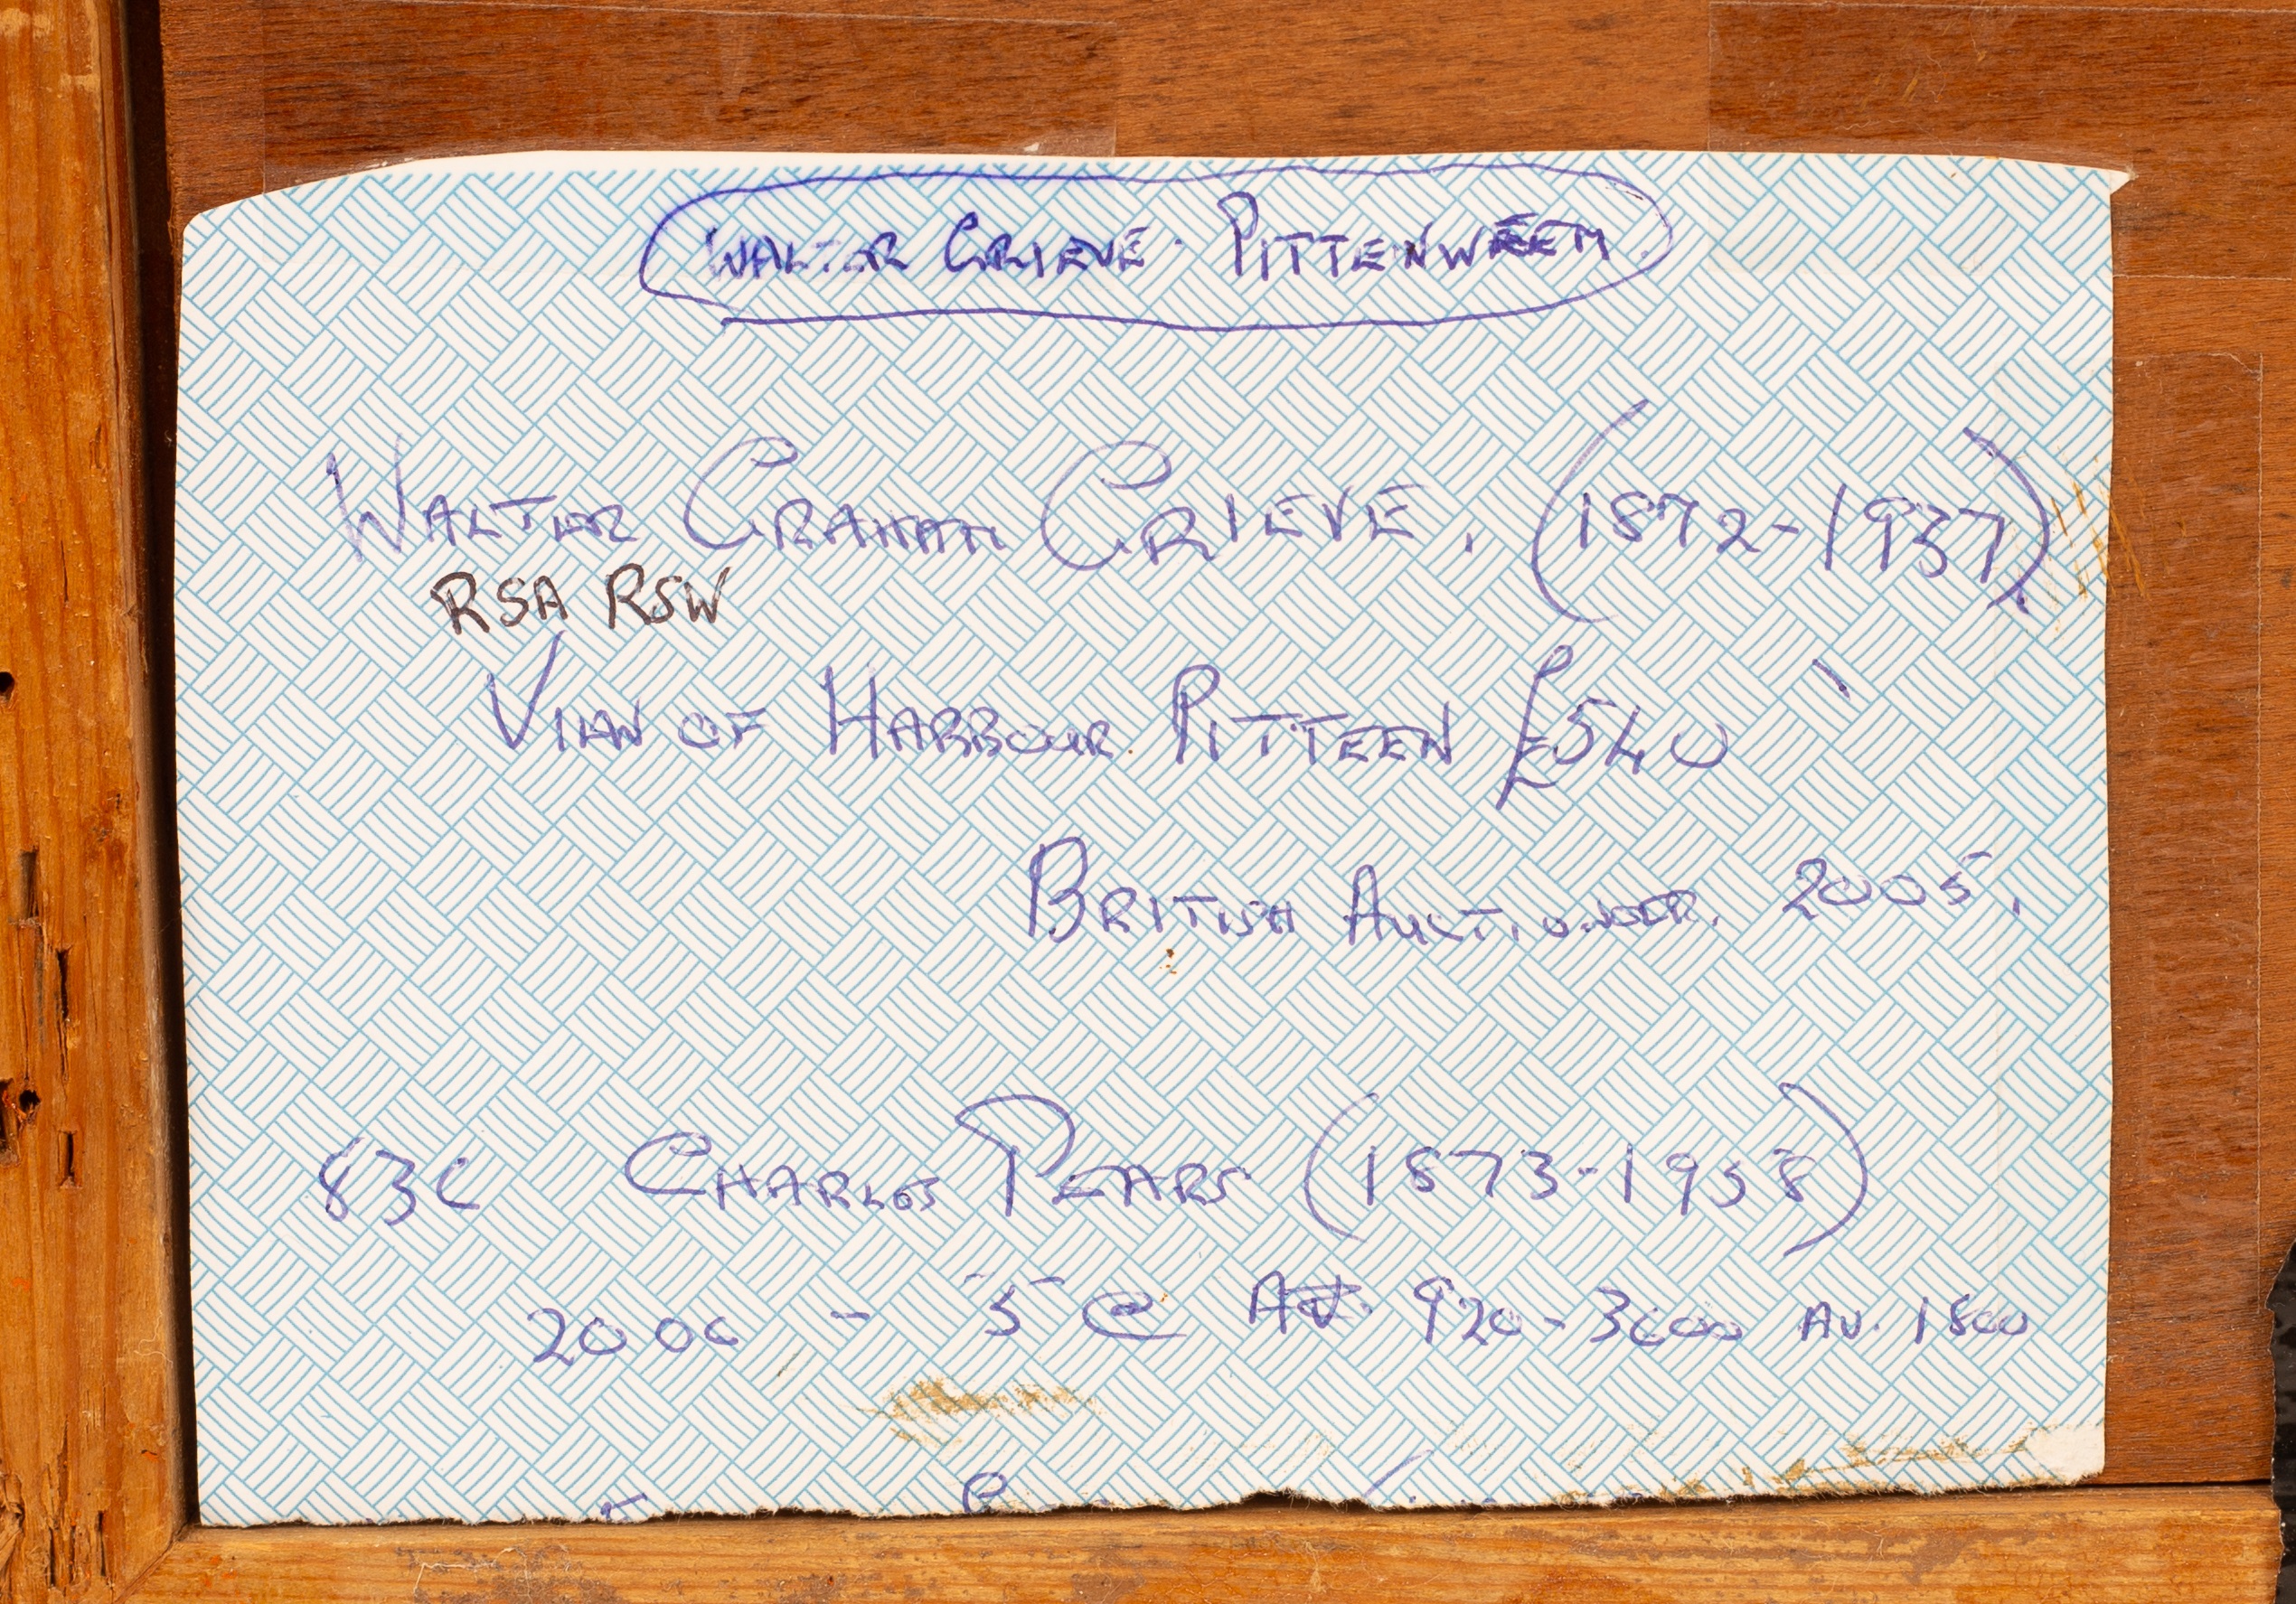 WALTER GRIEVE. PITTENWEEM
WALTER GRAHAM GRIEVE. (1872-1937)
RSA RSW
VIEW OF HARBOUR. PITTEEN £540
BRITISH AUCTIONEER. 2005.
CHARLES PEARS (1873-1958)
2006 - 5 @ 920-3600 AV. 1800